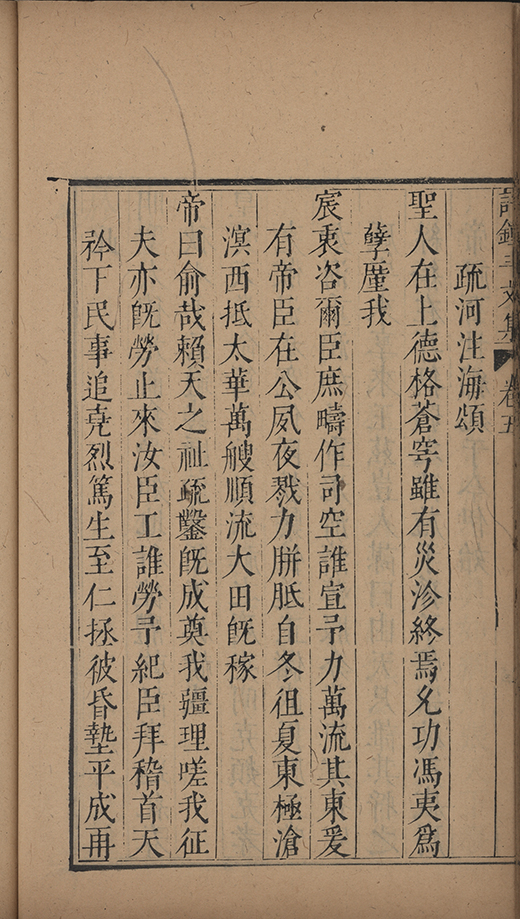 文集 卷五
疏河注海頌
聖人在上德格蒼穹雖有災沴終焉允功馮夷爲
孽墜我
宸衷咨爾臣庶疇作司空誰宣予力萬流其東爰
有帝臣在公夙夜戮力胼胝自冬徂夏東極滄
溟西抵太華萬艘順流大田旣稼
帝曰俞哉賴天之祉疏鑿旣成奠我疆理嗟我征
夫亦旣勞止來汝臣工誰勞予紀臣拜稽首天
矜下民事追堯烈篤生至仁拯彼昏墊平成再